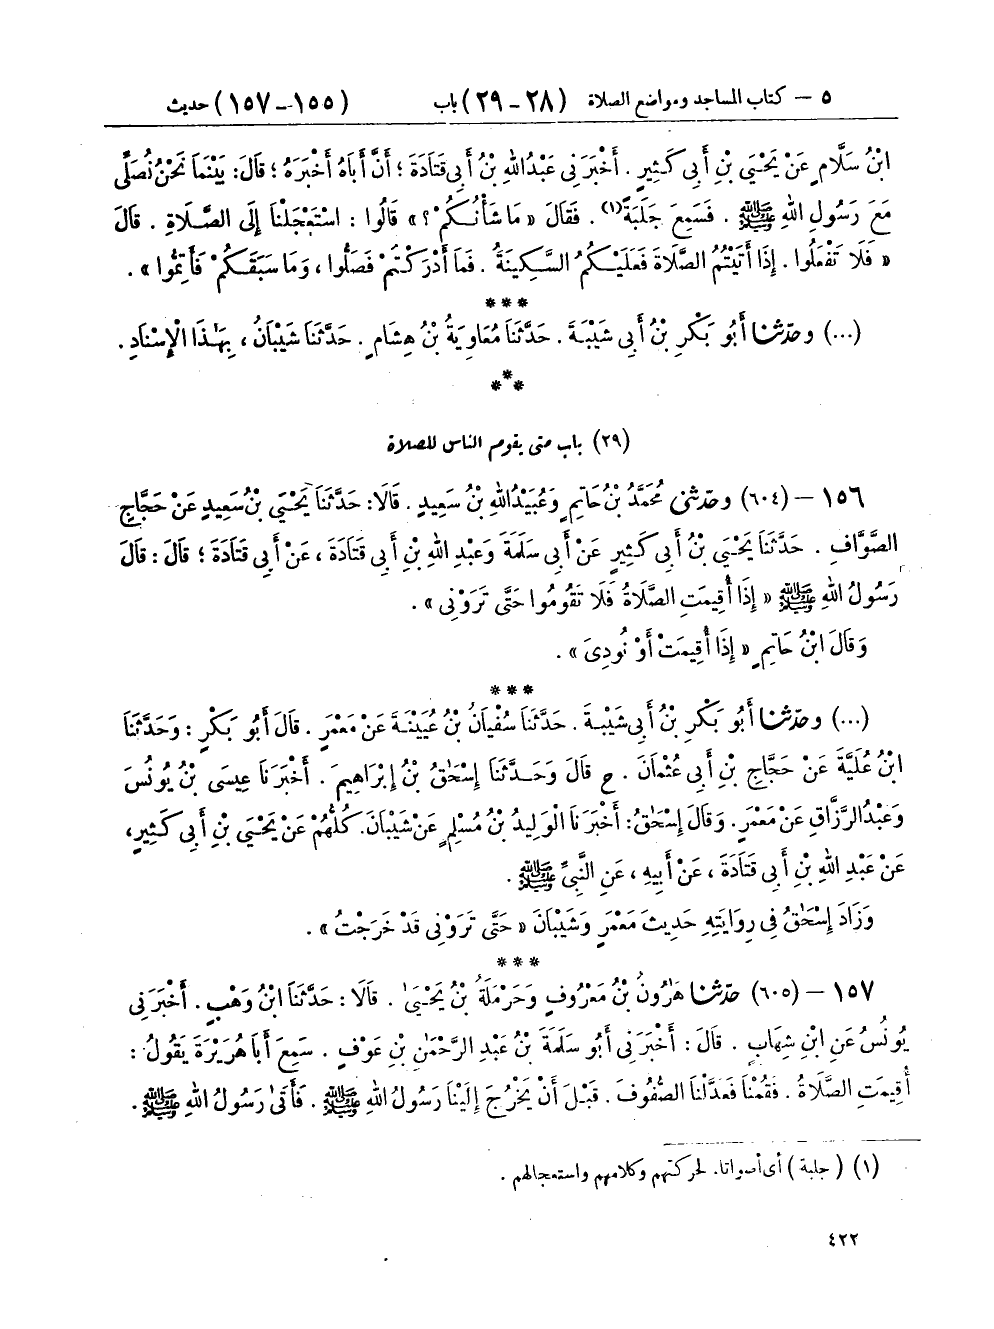 ٥ – كتاب المساجد ومواضع الصلاة (٢٨ – ٢٩) باب (١٥٥ – ١٥٧) حديث
ابْنُ سَلَّامٍ عَنْ يَحْيَى بْنِ أَبِي كَثِيرٍ . أَخْبَرَنِي عَبْدُ اللهِ بْنُ أَبِي قَتَادَةَ ؛ أَنَّ أَبَاهُ أَخْبَرَهُ ؛ قَالَ: بَيْنَمَا نَحْنُ نُصَلِّي
مَعَ رَسُولِ اللهِ ﷺ . فَسَمِعَ جَلَبَةً (١) . فَقَالَ « مَا شَأْنُكُمْ ؟ » قَالُوا : اسْتَعْجَلْنَا إِلَى الصَّلَاةِ . قَالَ
« فَلَا تَفْعَلُوا . إِذَا أَتَيْتُمُ الصَّلَاةَ فَعَلَيْكُمُ السَّكِينَةُ . فَمَا أَدْرَكْتُمْ فَصَلُّوا ، وَمَا سَبَقَكُمْ فَأَتِمُّوا » .
***
(...) وحَدَّثَنَا أَبُو بَكْرِ بْنُ أَبِي شَيْبَةَ . حَدَّثَنَا مُعَاوِيَةُ بْنُ هِشَامٍ . حَدَّثَنَا شَيْبَانُ ، بِهَٰذَا الْإِسْنَادِ .
***
(٢٩) باب متى يقوم الناس للصلاة
١٥٦ – (٦٠٤) وحَدَّثَنِي مُحَمَّدُ بْنُ حَاتِمٍ وَعُبَيْدُ اللهِ بْنُ سَعِيدٍ . قَالَا: حَدَّثَنَا يَحْيَى بْنُ سَعِيدٍ عَنْ حَجَّاجٍ
الصَّوَّافِ . حَدَّثَنَا يَحْيَى بْنُ أَبِي كَثِيرٍ عَنْ أَبِي سَلَمَةَ وَعَبْدِ اللهِ بْنِ أَبِي قَتَادَةَ ، عَنْ أَبِي قَتَادَةَ ؛ قَالَ : قَالَ
رَسُولُ اللهِ ﷺ « إِذَا أُقِيمَتِ الصَّلَاةُ فَلَا تَقُومُوا حَتَّى تَرَوْنِي » .
وَقَالَ ابْنُ حَاتِمٍ « إِذَا أُقِيمَتْ أَوْ نُودِيَ » .
***
(...) وحَدَّثَنَا أَبُو بَكْرِ بْنُ أَبِي شَيْبَةَ . حَدَّثَنَا سُفْيَانُ بْنُ عُيَيْنَةَ عَنْ مَعْمَرٍ . قَالَ أَبُو بَكْرٍ : وَحَدَّثَنَا
ابْنُ عُلَيَّةَ عَنْ حَجَّاجِ بْنِ أَبِي عُثْمَانَ . ح قَالَ وَحَدَّثَنَا إِسْحَٰقُ بْنُ إِبْرَاهِيمَ . أَخْبَرَنَا عِيسَى بْنُ يُونُسَ
وَعَبْدُ الرَّزَّاقِ عَنْ مَعْمَرٍ . وَقَالَ إِسْحَٰقُ: أَخْبَرَنَا الْوَلِيدُ بْنُ مُسْلِمٍ عَنْ شَيْبَانَ. كُلُّهُمْ عَنْ يَحْيَى بْنِ أَبِي كَثِيرٍ،
عَنْ عَبْدِ اللهِ بْنِ أَبِي قَتَادَةَ ، عَنْ أَبِيهِ ، عَنِ النَّبِيِّ ﷺ .
وَزَادَ إِسْحَٰقُ فِي رِوَايَتِهِ حَدِيثَ مَعْمَرٍ وَشَيْبَانَ « حَتَّى تَرَوْنِي قَدْ خَرَجْتُ » .
***
١٥٧ – (٦٠٥) حَدَّثَنَا هَٰرُونُ بْنُ مَعْرُوفٍ وَحَرْمَلَةُ بْنُ يَحْيَىٰ . قَالَا : حَدَّثَنَا ابْنُ وَهْبٍ . أَخْبَرَنِي
يُونُسُ عَنِ ابْنِ شِهَابٍ . قَالَ : أَخْبَرَنِي أَبُو سَلَمَةَ بْنُ عَبْدِ الرَّحْمَٰنِ بْنِ عَوْفٍ . سَمِعَ أَبَا هُرَيْرَةَ يَقُولُ :
أُقِيمَتِ الصَّلَاةُ . فَقُمْنَا فَعَدَّلْنَا الصُّفُوفَ . قَبْلَ أَنْ يَخْرُجَ إِلَيْنَا رَسُولُ اللهِ ﷺ . فَأَتَىٰ رَسُولُ اللهِ ﷺ .
(١) ( جلبة ) أي أصواتا. لحركتهم وكلامهم واستعجالهم .
٤٢٢